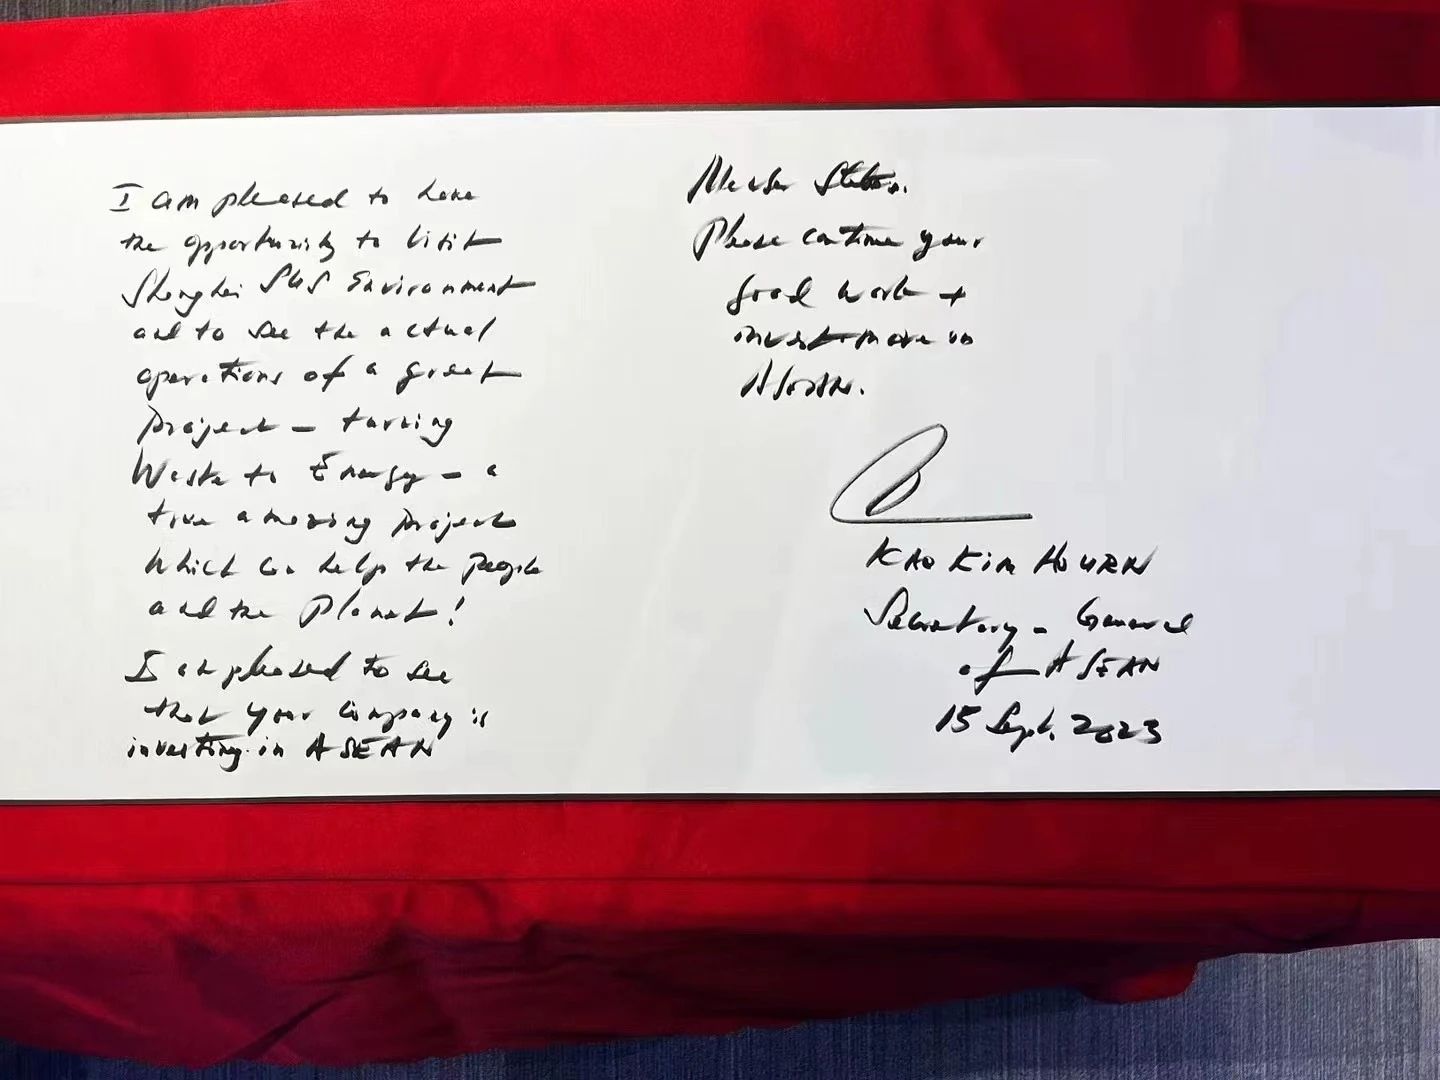 I am pleased to have
the opportunity to visit
Shanghai SUS Environment
and to see the actual
operations of a great
project – turning
Waste to Energy – a
true amazing project
which can help the people
and the Planet!
I am pleased to see
that your company is
investing in ASEAN
Member States.
Please continue your
good work +
invest more in
ASEAN.
KAO KIM HOURN
Secretary – General
of ASEAN
15 Sept. 2023